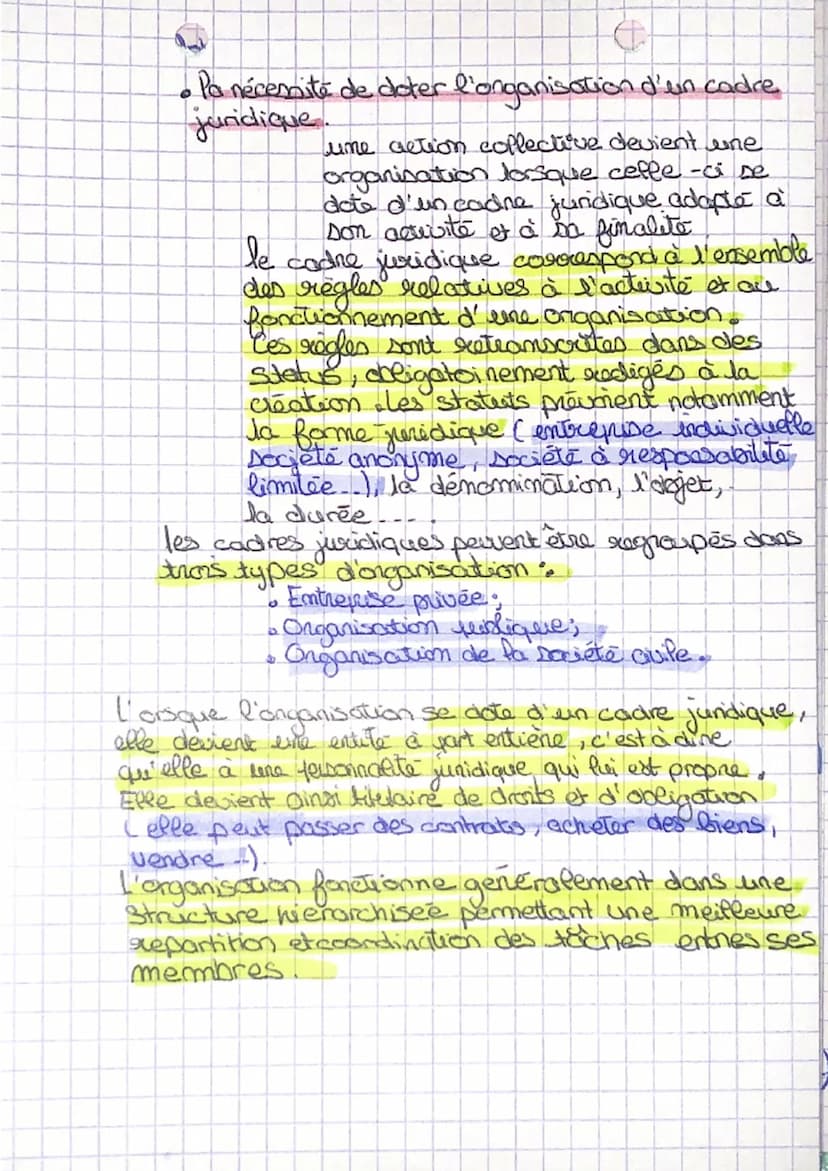 • La nécessité de doter l'organisation d'un cadre
juridique.
une action collective devient une
organisation lorsque celle-ci se
dote d'un cadre juridique adapté à
son activité et à sa finalité
le cadre juridique correspond à l'ensemble
des règles relatives à l'activité et au
fonctionnement d'une organisation.
Ces règles sont retranscrites dans des
status, obligatoirement redigés à la
création. Les statuts prévoient notamment
la forme juridique (entreprise individuelle
société anonyme, société à responsabilité
limitée...), la dénomination, l'objet,
la durée....
les cadres juridiques peuvent être regroupés dans
trois types d'organisation :
• Entreprise privée;
• Organisation publique;
• Organisation de la société civile.
L'orsque l'organisation se dote d'un cadre juridique,
elle devient une entité à part entière, c'est à dire
qu'elle à une personnalité juridique qui lui est propre.
Elle devient ainsi titulaire de droits et d'obligation
(elle peut passer des contrats, acheter des biens,
vendre...).
L'organisation fonctionne généralement dans une
structure hierarchisée permettant une meilleure
repartition et coordination des tâches entres ses
membres.